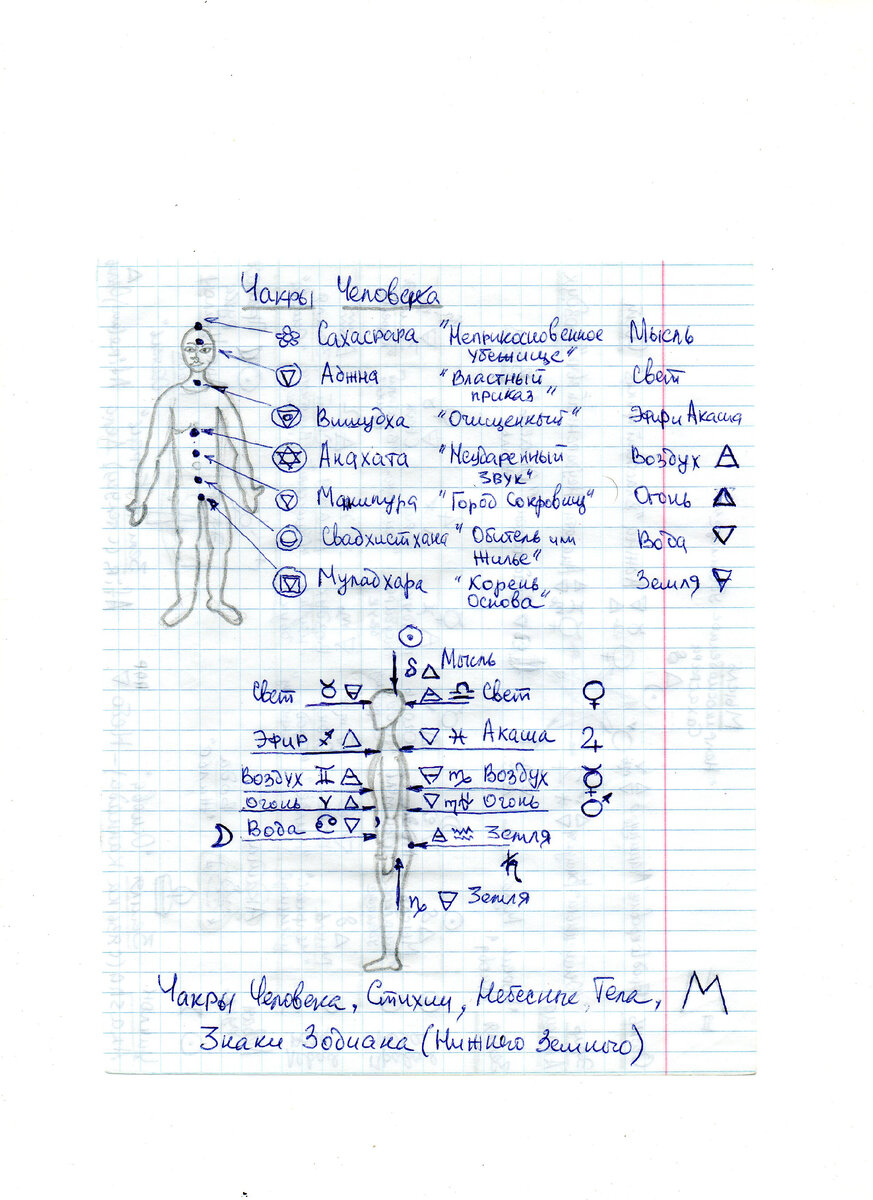 Чакры Человека
Сахасрара "Неприкосновенное убежище" Мысль
Аджна "Властный приказ" Свет
Вишудха "Очищенный" Эфир и Акаша
Анахата "Неударенный звук" Воздух
Манипура "Город Сокровищ" Огонь
Свадхистхана "Обитель или Жилье" Вода
Муладхара "Корень, Основа" Земля
☉
δ △ Мысль
Свет ♉ ♎ Свет ♀
Эфир ♐ △ ▽ ♓ Акаша ♃
Воздух ♊ ♍ Воздух ☿
Огонь ♈ △ ▽ ♏ Огонь ♂
☽ Вода ♋ ▽ ♒ Земля
♄
♑ Земля
Чакры Человека, Стихии, Небесные Тела, М
Знаки Зодиака (Нижнего Земного)